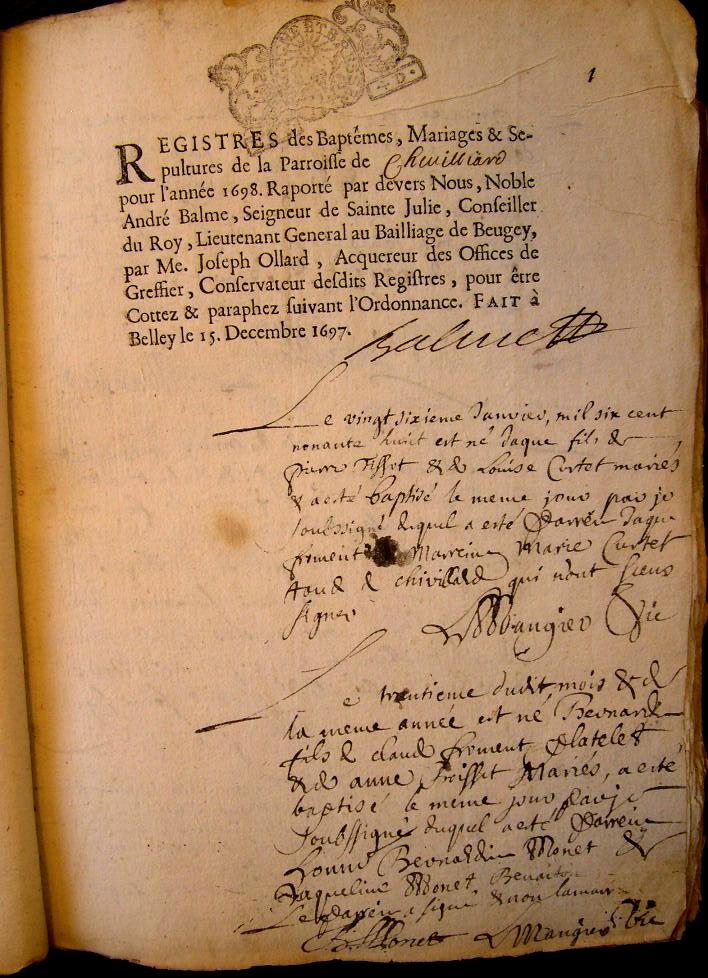 1
REGISTRES des Baptêmes, Mariages & Se-
pultures de la Parroisse de Chevilliard
pour l'année 1698. Raporté par devers Nous, Noble
André Balme, Seigneur de Sainte Julie, Conseiller
du Roy, Lieutenant General au Bailliage de Beugey,
par Me. Joseph Ollard, Acquereur des Offices de
Greffier, Conservateur desdits Registres, pour être
Cottez & paraphez suivant l'Ordonnance. FAIT à
Belley le 15. Decembre 1697.
Balme
Le vingt sixieme Janvier, mil six cent
nonante huict est né Jaque fils de
pierre Tissot & de Louise Curtet mariés
& a esté baptisé le meme jour par je
soubssigné duquel a esté Parrein Jaque
froment Marreine Marie Curtet
tous de chivillard qui n'ont sceus
signer
Mangier Vic
Le trentieme dudit mois & de
la meme année est né Bernard
fils de claude froment Platelet
& de anne Mariés, a esté
baptisé le meme jour par je
soubssigné duquel a esté Parrein
honné Bernardin Monet &
Jaqueline Monet
Le Parrein a signé & non la marr:
B. Monet Mangier Vic